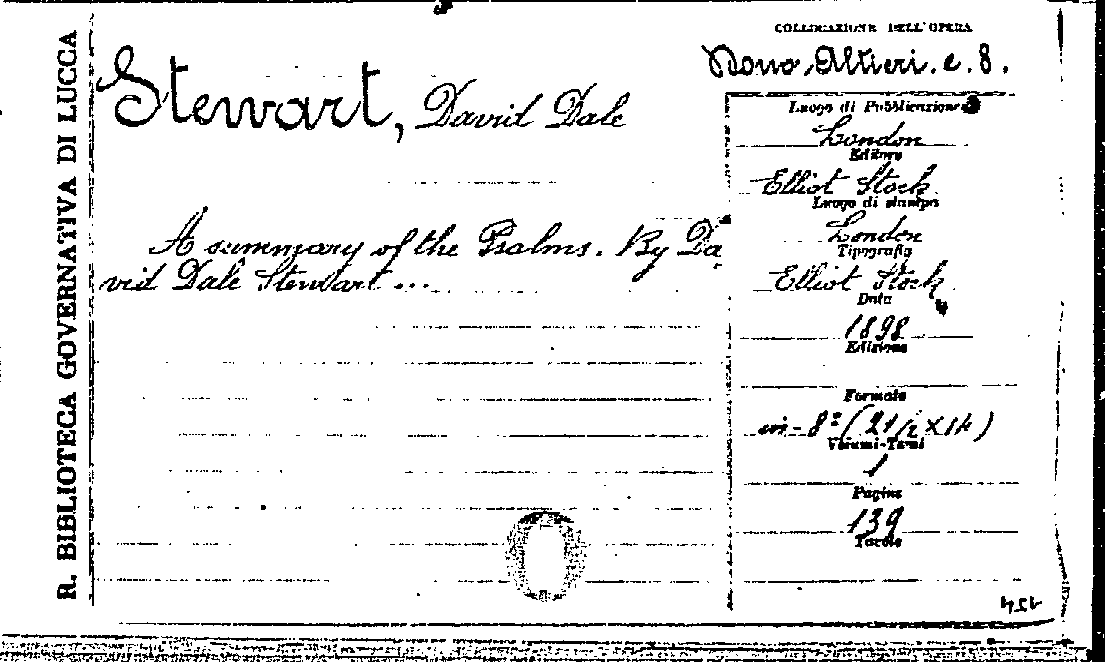 R. BIBLIOTECA GOVERNATIVA DI LUCCA
COLLOCAZIONE DELL'OPERA
Dono Altieri. e. 8.
Stewart, David Dale
A summary of the Psalms. By Da
vid Dale Stewart ...
Luogo di Pubblicazione
London
Editore
Elliot Stock
Luogo di stampa
London
Tipografia
Elliot Stock
Data
1898
Edizione
Formato
in-8º (21/2 X 14)
Volumi-Tomi
1
Pagine
139
Tavole